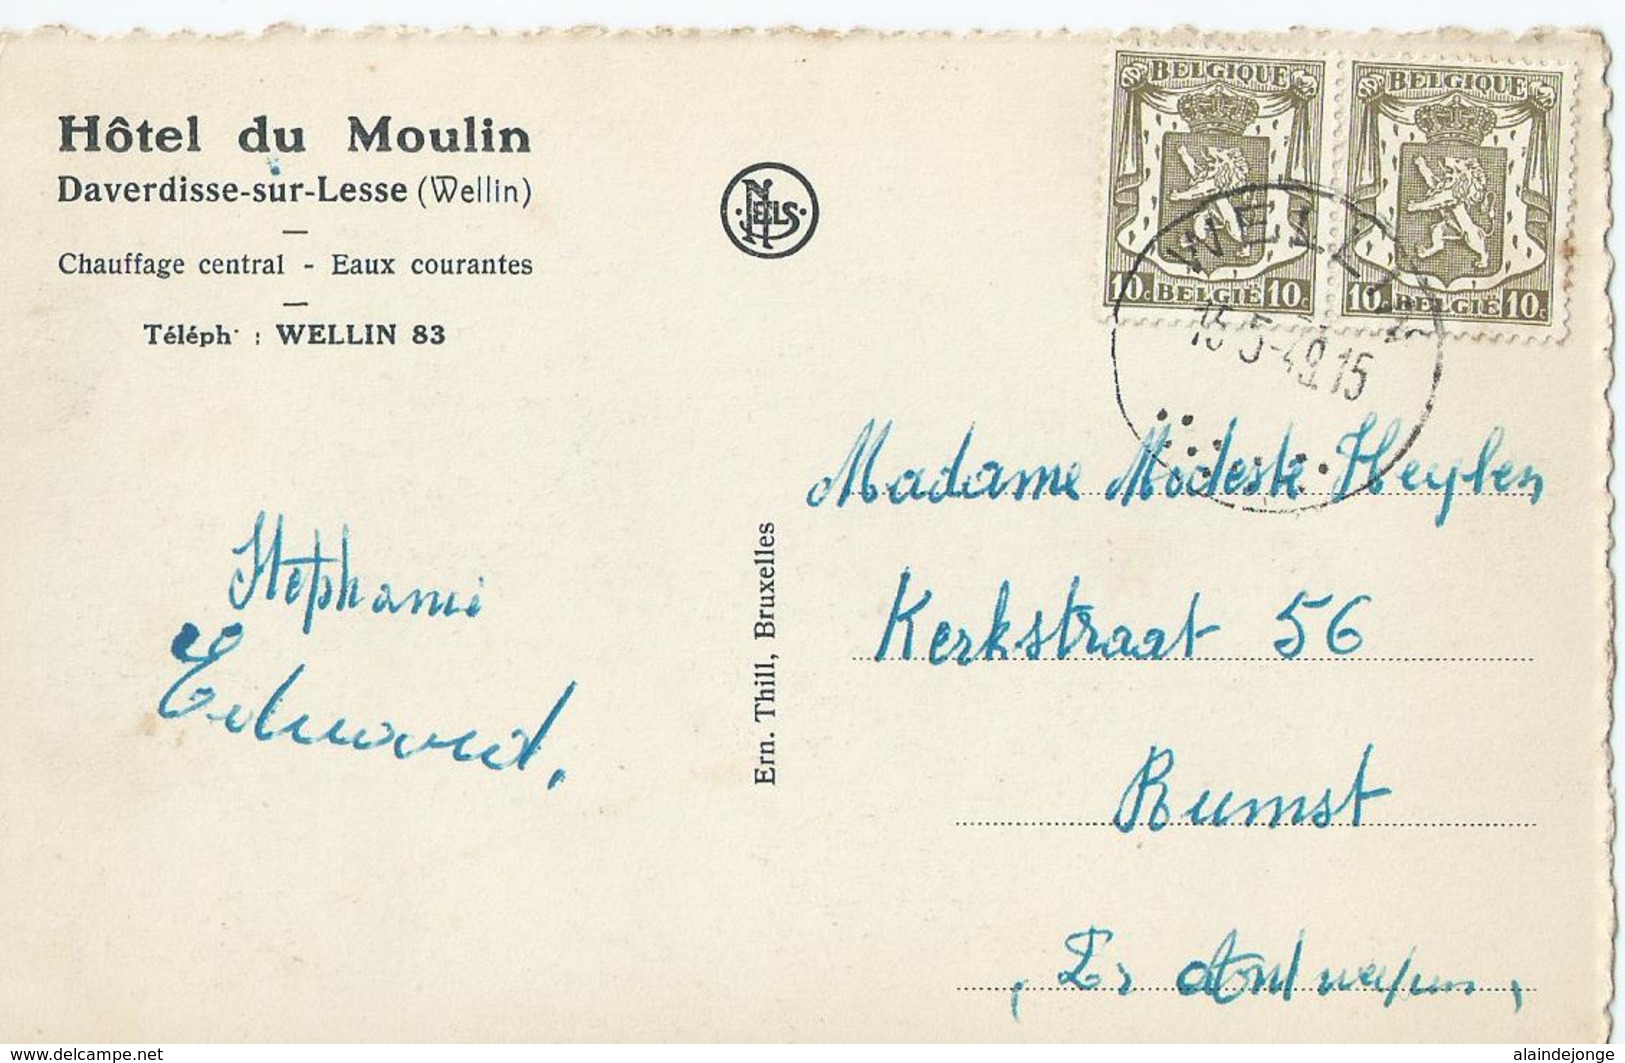 Hôtel du Moulin
Daverdisse-sur-Lesse (Wellin)
Chauffage central - Eaux courantes
Téléph. : WELLIN 83
NELS
BELGIQUE
10c BELGIË 10c
BELGIQUE
10c BELGIË 10c
WELLIN
15-5-49.15
Stéphanie
Edward.
Ern. Thill, Bruxelles
Madame Modeste Heylen
Kerkstraat 56
Rumst
Antwerpen
www.delcampe.net
alaindejonge